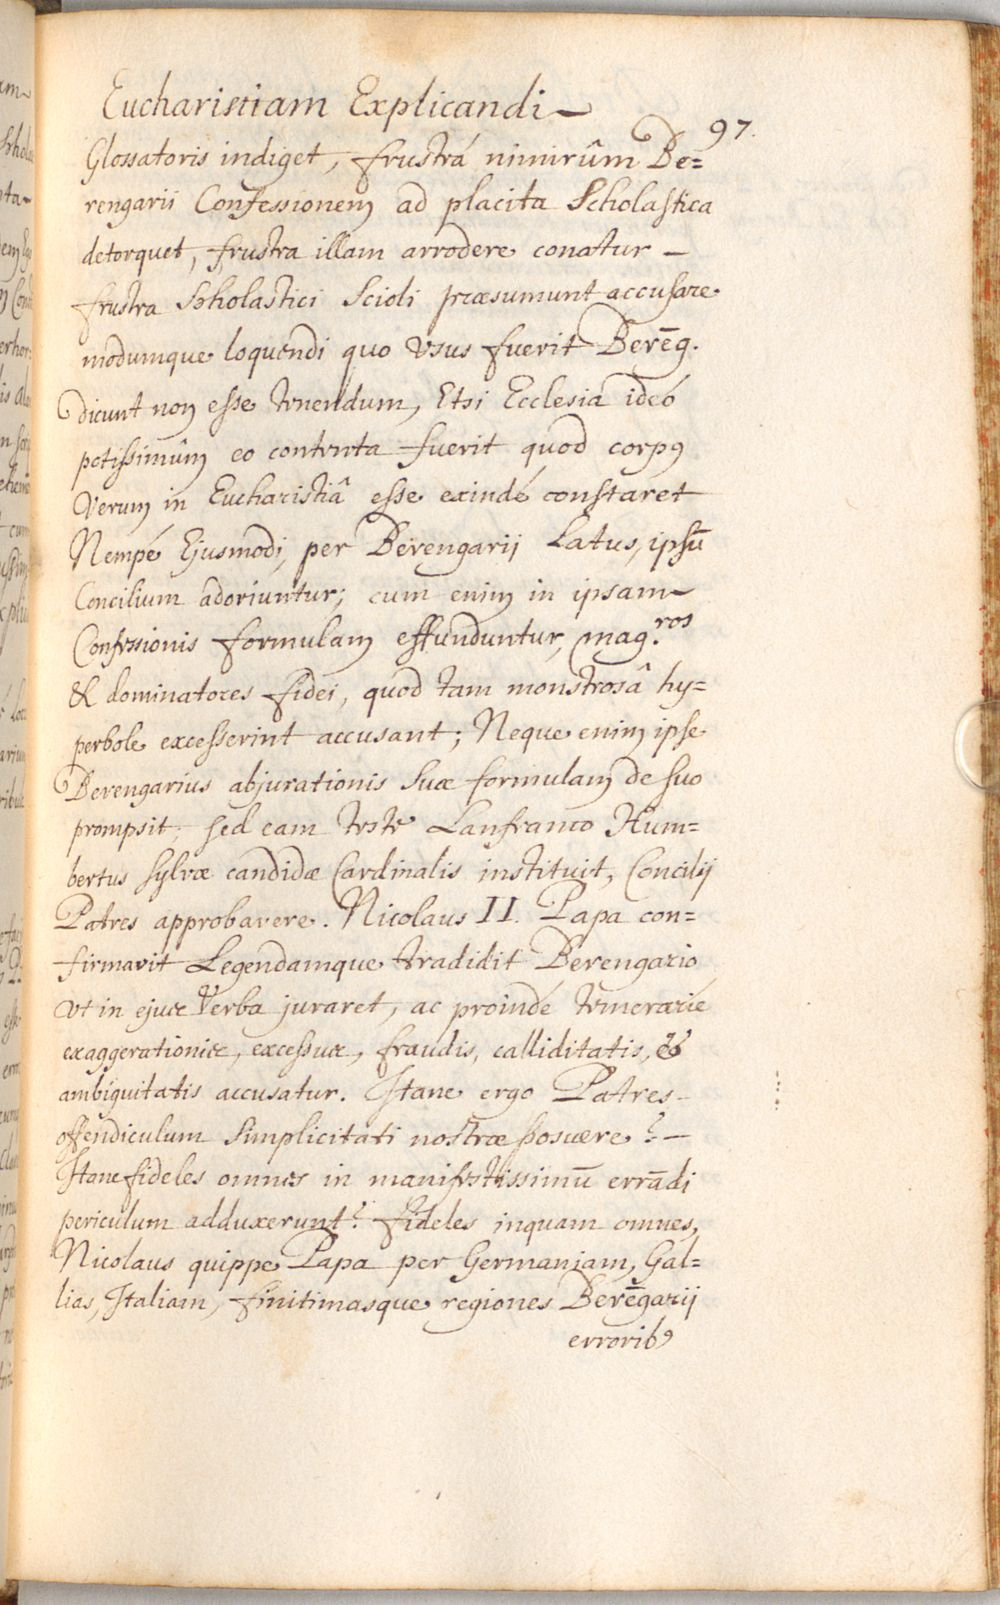 Eucharistiam Explicandi
97.
Glossatoris indiget, frustrá nimirûm Be=
rengarii Confessionem ad placita Scholastica
detorquet, frustra illam arrodere conatur —
frustra Scholastici Scioli præsumunt accusare
modumque loquendi quo usus fuerit Berēg.
dicunt non esse tenendum, Etsi Ecclesia ideó
potissimûm eo contenta fuerit quod corpꝰ
Verum in Eucharistiâ esse exindé constaret
Nempé Ejusmodi, per Berengarij Latus, ipsū
Concilium adoriuntur; cum enim in ipsam
Confessionis formulam effunduntur, mag.ros
& dominatores fidei, quod tam monstrosâ hy=
perbole excesserint accusant; Neque enim ipse
Berengarius abjurationis Suæ formulam de suo
prompsit; sed eam teste Lanfranco Hum=
bertus sylvæ candidæ Cardinalis instituit, Concilij
Patres approbavere. Nicolaus II. Papa con=
firmavit Legendamque tradidit Berengario
vt in ejus Verba juraret, ac proindé temerarie
exaggerationis, excessus, fraudis, calliditatis, &
ambiguitatis accusatur. Itane ergo Patres
offendiculum Simplicitati nostræ posuere? —
Itane fideles omnes in manifestissimū errādi
periculum adduxerunt? fideles inquam omnes,
Nicolaus quippe Papa per Germaniam, Gal=
lias, Italiam, finitimasque regiones Berēgarij
erroribꝰ